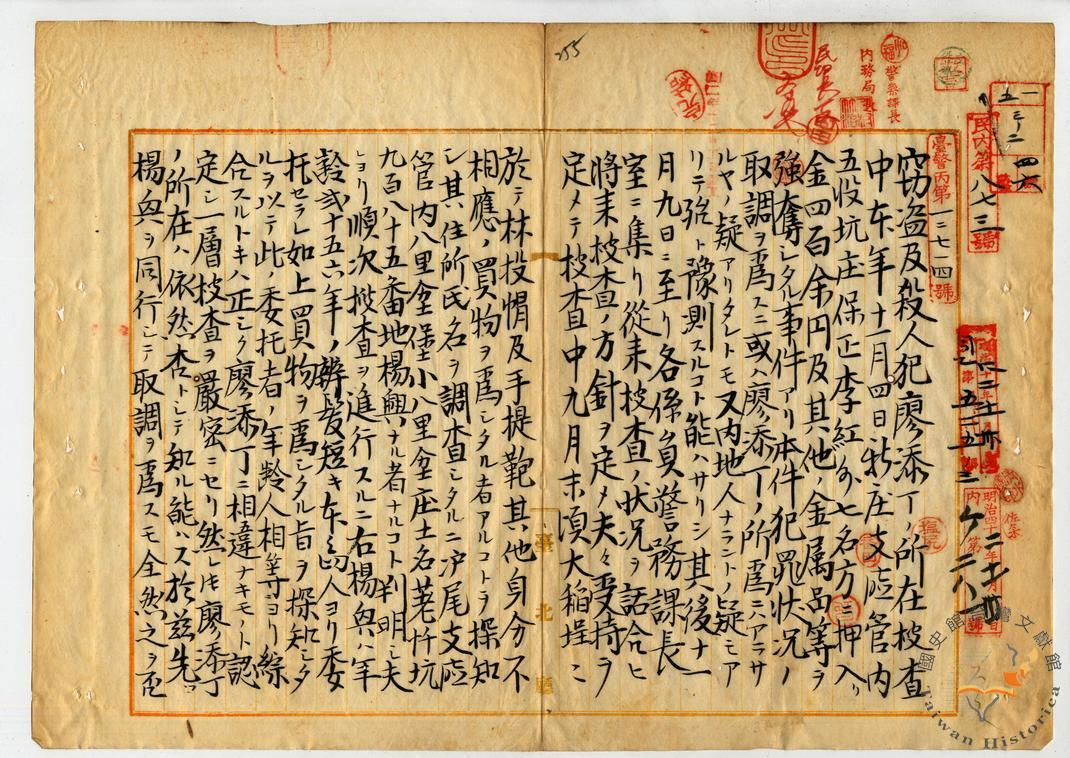 臺警丙第一二七一四號
民內第八七三號
警察課長
內務局長
255
窃盗及殺人犯廖添丁ノ所在捜査
中本年十一月四日新庄支廳管内
五股坑庄保正李紅外七名方ニ押入リ
金四百余円及其他ノ金属品等ヲ
強奪シタル事件アリ本件犯罪状况ノ
取調ヲ爲スニ或ハ廖添丁ノ所爲ニハアラサ
ルヤノ疑アリタレトモ又内地人ナラントノ疑モア
リテ強ト豫測スルコト能ハサリシ其後十一
月九日ニ至リ各係員警務課長
室ニ集リ從来捜査ノ状况ヲ話合ヒ
將来捜査ノ方針ヲ定メ夫々受持ヲ
定メテ捜査中九月末頃大稲埕ニ
於テ林投帽及手提鞄其他身分不
相應ノ買物ヲ爲シタル者アルコトヲ探知
シ其住所氏名ヲ調査シタルニ滬尾支廳
管内八里坌堡小八里坌庄土名荖阡坑
九百八十五番地楊興ナル者ナルコト判明シ夫
ヨリ順次捜査ヲ進行スルニ右楊興ハ年
齡弐十五六年ノ辮髪短キ本島人ヨリ委
托セラレ如上買物ヲ爲シタル旨ヲ探知シタ
ルヲ以テ此ノ委托者ノ年齡人相等ヨリ綜
合スルトキハ正シク廖添丁ニ相違ナキモノト認
定シ一層捜査ヲ嚴密ニセリ然レ圧廖添丁
ノ所在ハ依然杳トシテ知ル能ハス於茲先ツ
楊興ヲ同行シテ取調ヲ爲スモ全然之ヲ否
臺北廳
國史館臺灣文獻館
Taiwan Historica